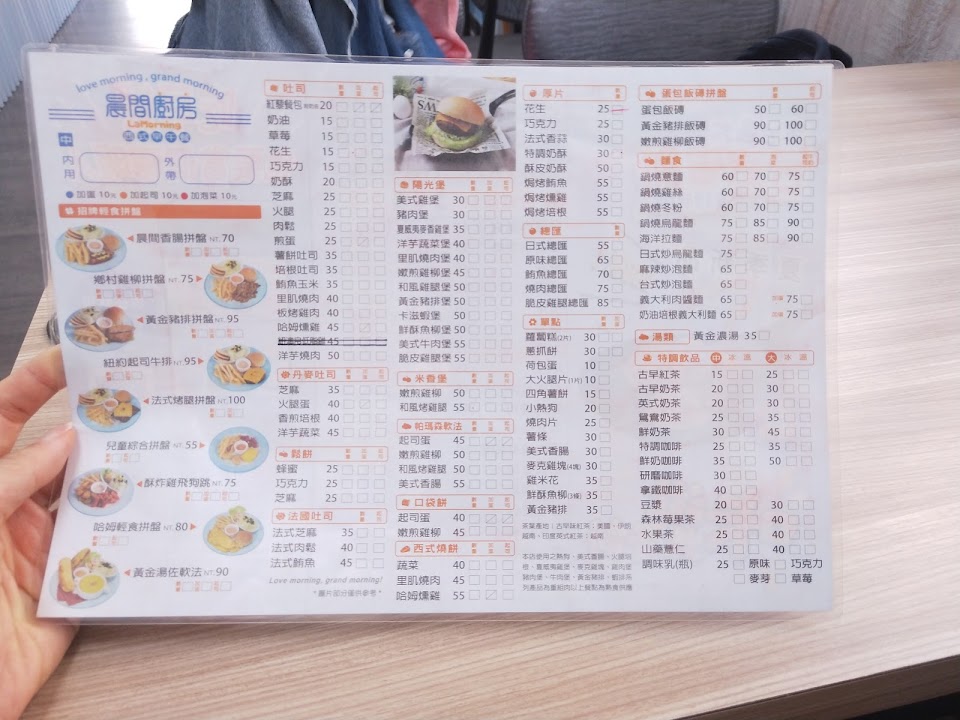 love morning , grand morning
晨間廚房
LaMorning
西式早午餐
中
內用
外帶
加蛋 10元 加起司 10元 加泡菜 10元
招牌輕食拼盤
晨間香腸拼盤 NT.70
鄉村雞柳拼盤 NT.75
黃金豬排拼盤 NT.95
紐約起司牛排 NT.95
法式烤腿拼盤 NT.100
兒童綜合拼盤 NT.55
酥炸雞飛狗跳 NT.75
哈姆輕食拼盤 NT.80
黃金湯佐軟法 NT.90
吐司
紅藜餐包 20
奶油 15
草莓 15
花生 15
巧克力 15
奶酥 20
芝麻 25
火腿 25
肉鬆 25
煎蛋 25
薯餅吐司 35
培根吐司 35
鮪魚玉米 35
里肌燒肉 40
板烤雞肉 40
哈姆燻雞 45
洋芋燒肉 50
丹麥吐司
芝麻 35
火腿蛋 40
香煎培根 40
洋芋蔬菜 45
鬆餅
蜂蜜 25
巧克力 25
芝麻 25
法國吐司
法式芝麻 35
法式肉鬆 40
法式鮪魚 45
Love morning, grand morning!
*圖片部分僅供參考*
陽光堡
美式雞堡 30
豬肉堡 30
夏威夷麥香雞堡 35
洋芋蔬菜堡 40
里肌燒肉堡 40
嫩煎雞柳堡 50
和風雞腿堡 50
黃金豬排堡 50
卡滋蝦堡 50
鮮酥魚柳堡 50
美式牛肉堡 55
脆皮雞腿堡 55
米香堡
嫩煎雞柳 50
和風烤雞腿 55
帕瑪森軟法
起司蛋 45
嫩煎雞柳 50
和風烤雞腿 50
美式香腸 55
口袋餅
起司蛋 40
嫩煎雞柳 45
西式燒餅
蔬菜 40
里肌燒肉 45
哈姆燻雞 55
厚片
花生 25
巧克力 25
法式香蒜 30
特調奶酥 30
酥皮奶酥 50
焗烤鮪魚 55
焗烤燻雞 55
焗烤培根 55
總匯
日式總匯 55
原味總匯 65
鮪魚總匯 70
燒肉總匯 75
脆皮雞腿總匯 85
單點
蘿蔔糕(2片) 30
蔥抓餅 30
荷包蛋 10
大火腿片(1片) 10
四角薯餅 15
小熱狗 20
燒肉片 25
薯條 30
美式香腸 30
麥克雞塊(4塊) 30
雞米花 35
鮮酥魚柳(3條) 35
黃金豬排 35
蛋包飯磚拼盤
蛋包飯磚 50 60
黃金豬排飯磚 90 100
嫩煎雞柳飯磚 90 100
麵食
鍋燒意麵 60 70 75
鍋燒雞絲 60 70 75
鍋燒冬粉 60 70 75
鍋燒烏龍麵 75 85 90
海洋拉麵 75 85 90
日式炒烏龍麵 75
麻辣炒泡麵 65
台式炒泡麵 65
義大利肉醬麵 65 75
奶油培根義大利麵 65 75
湯類 黃金濃湯 35
特調飲品 中 冰 溫 大 冰 溫
古早紅茶 15 25
古早奶茶 20 30
英式奶茶 20 30
鴛鴦奶茶 25 35
鮮奶茶 30 45
特調咖啡 25 35
鮮奶咖啡 35 50
研磨咖啡 30
拿鐵咖啡 40
豆漿 20 30
森林莓果茶 25 40
水果茶 25 40
山藥薏仁 25 40
調味乳(瓶) 25 原味 巧克力
麥芽 草莓